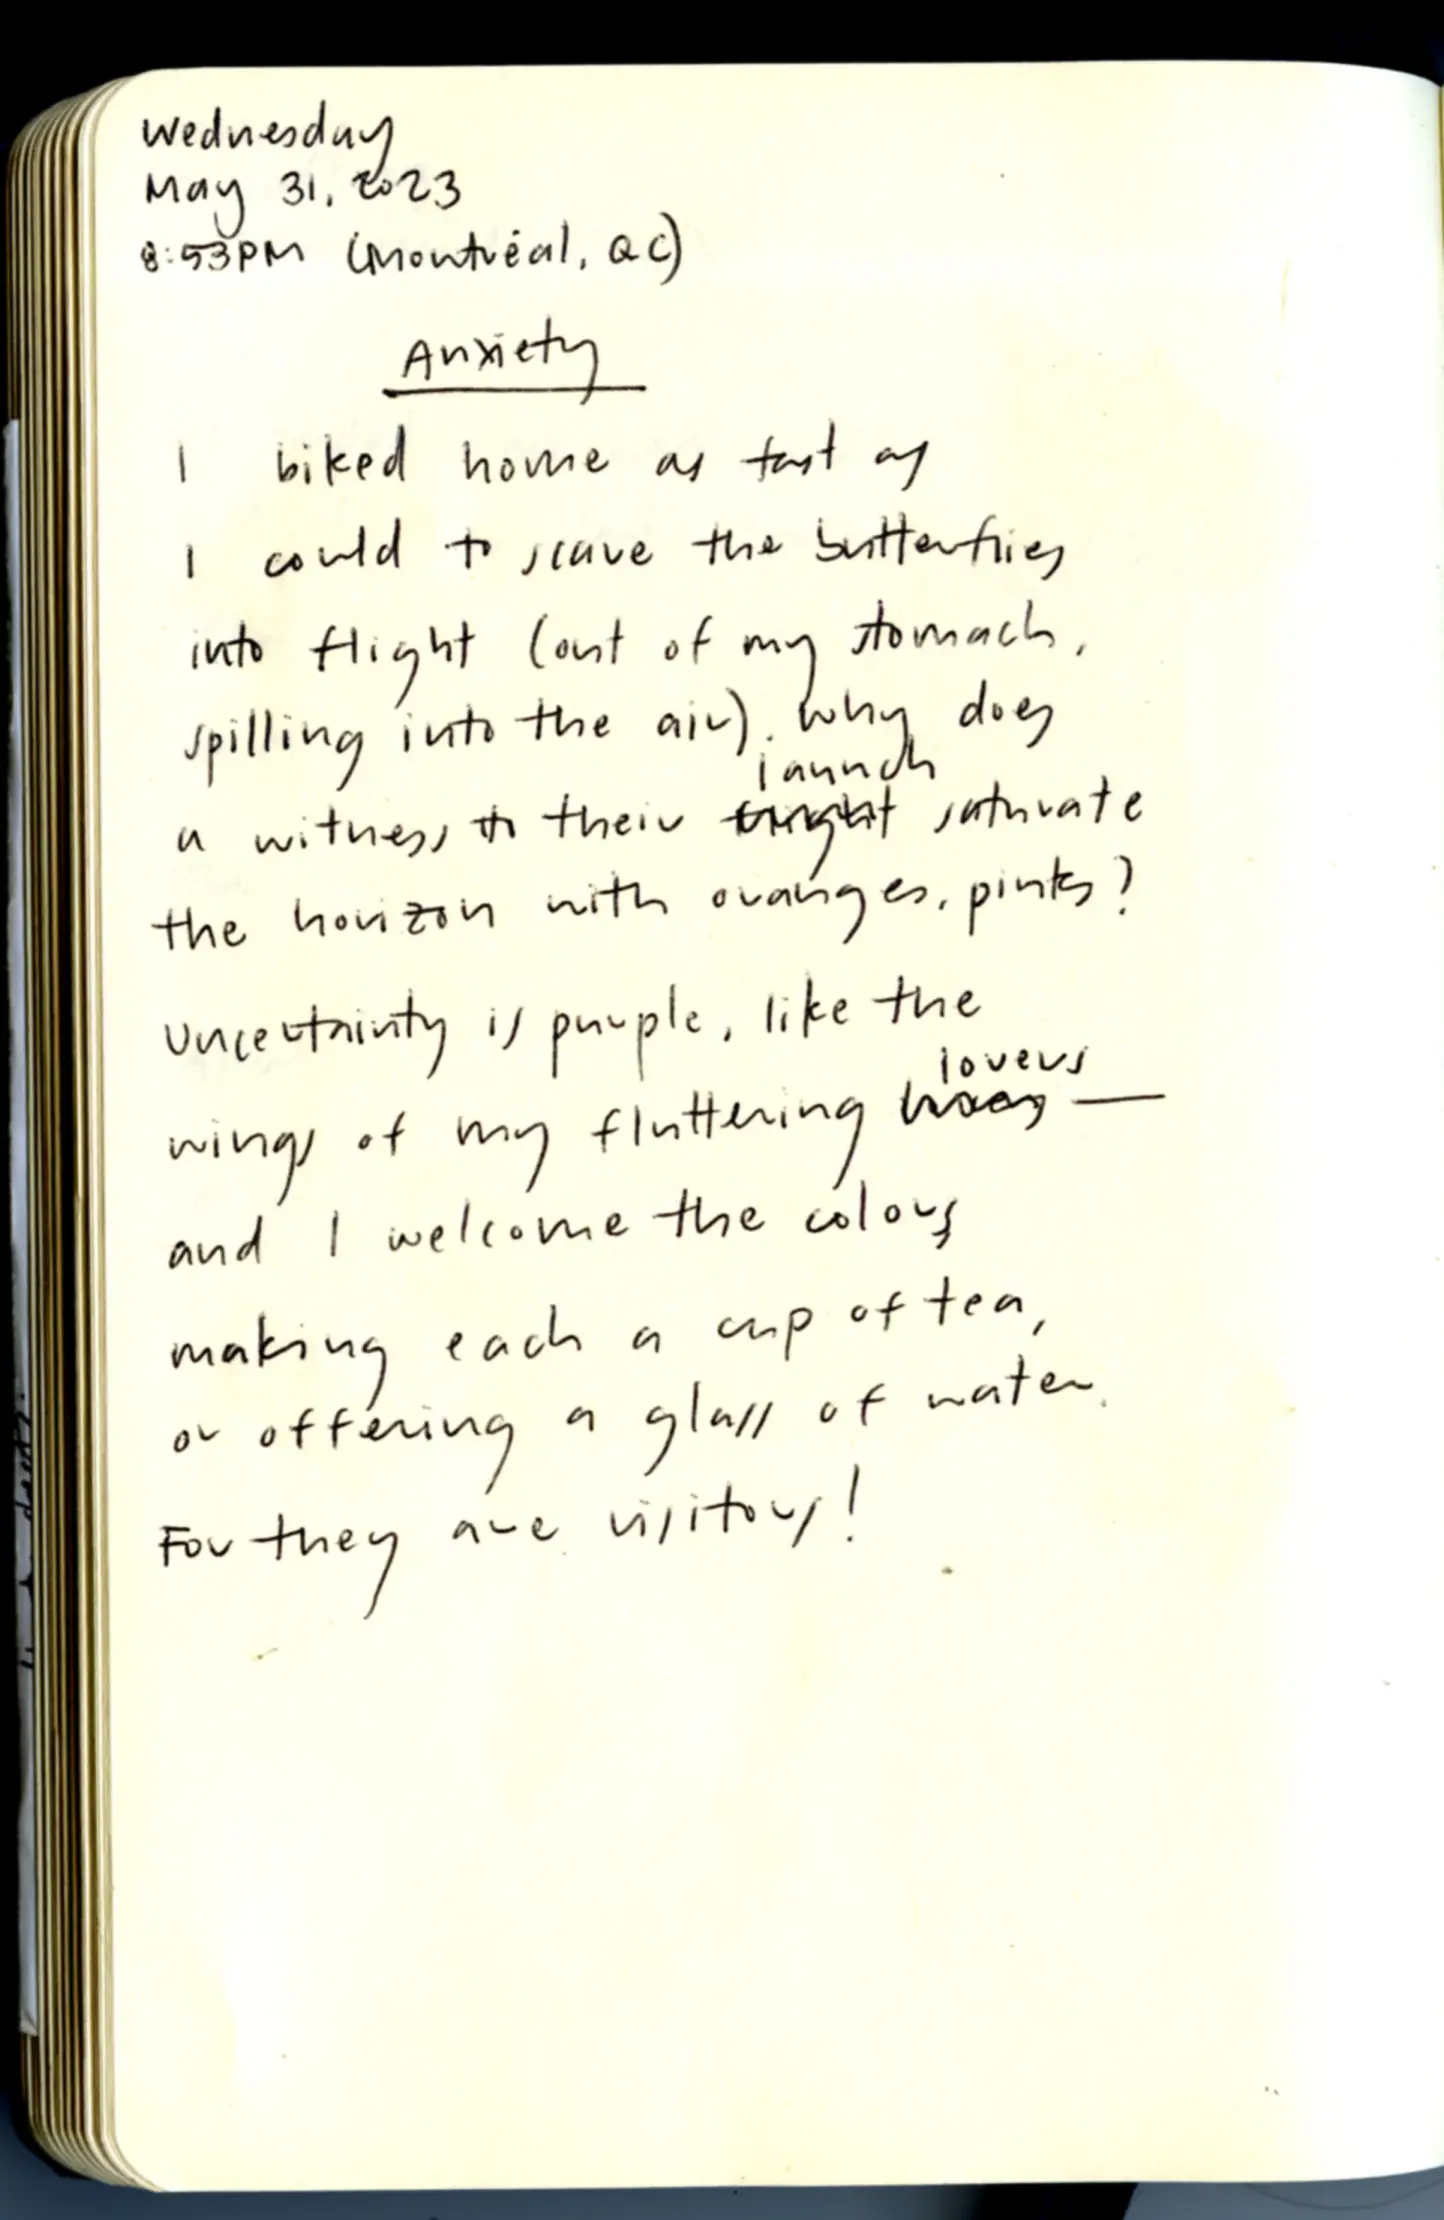 Wednesday
May 31, 2023
8:53PM (Montréal, QC)
Anxiety
I biked home as fast as
I could to scare the butterflies
into flight (out of my stomach,
spilling into the air). Why does
launch
a witness to their flight saturate
the horizon with oranges, pinks?
Uncertainty is purple, like the
lovers
wings of my fluttering —
and I welcome the colors
making each a cup of tea,
or offering a glass of water.
For they are visitors!